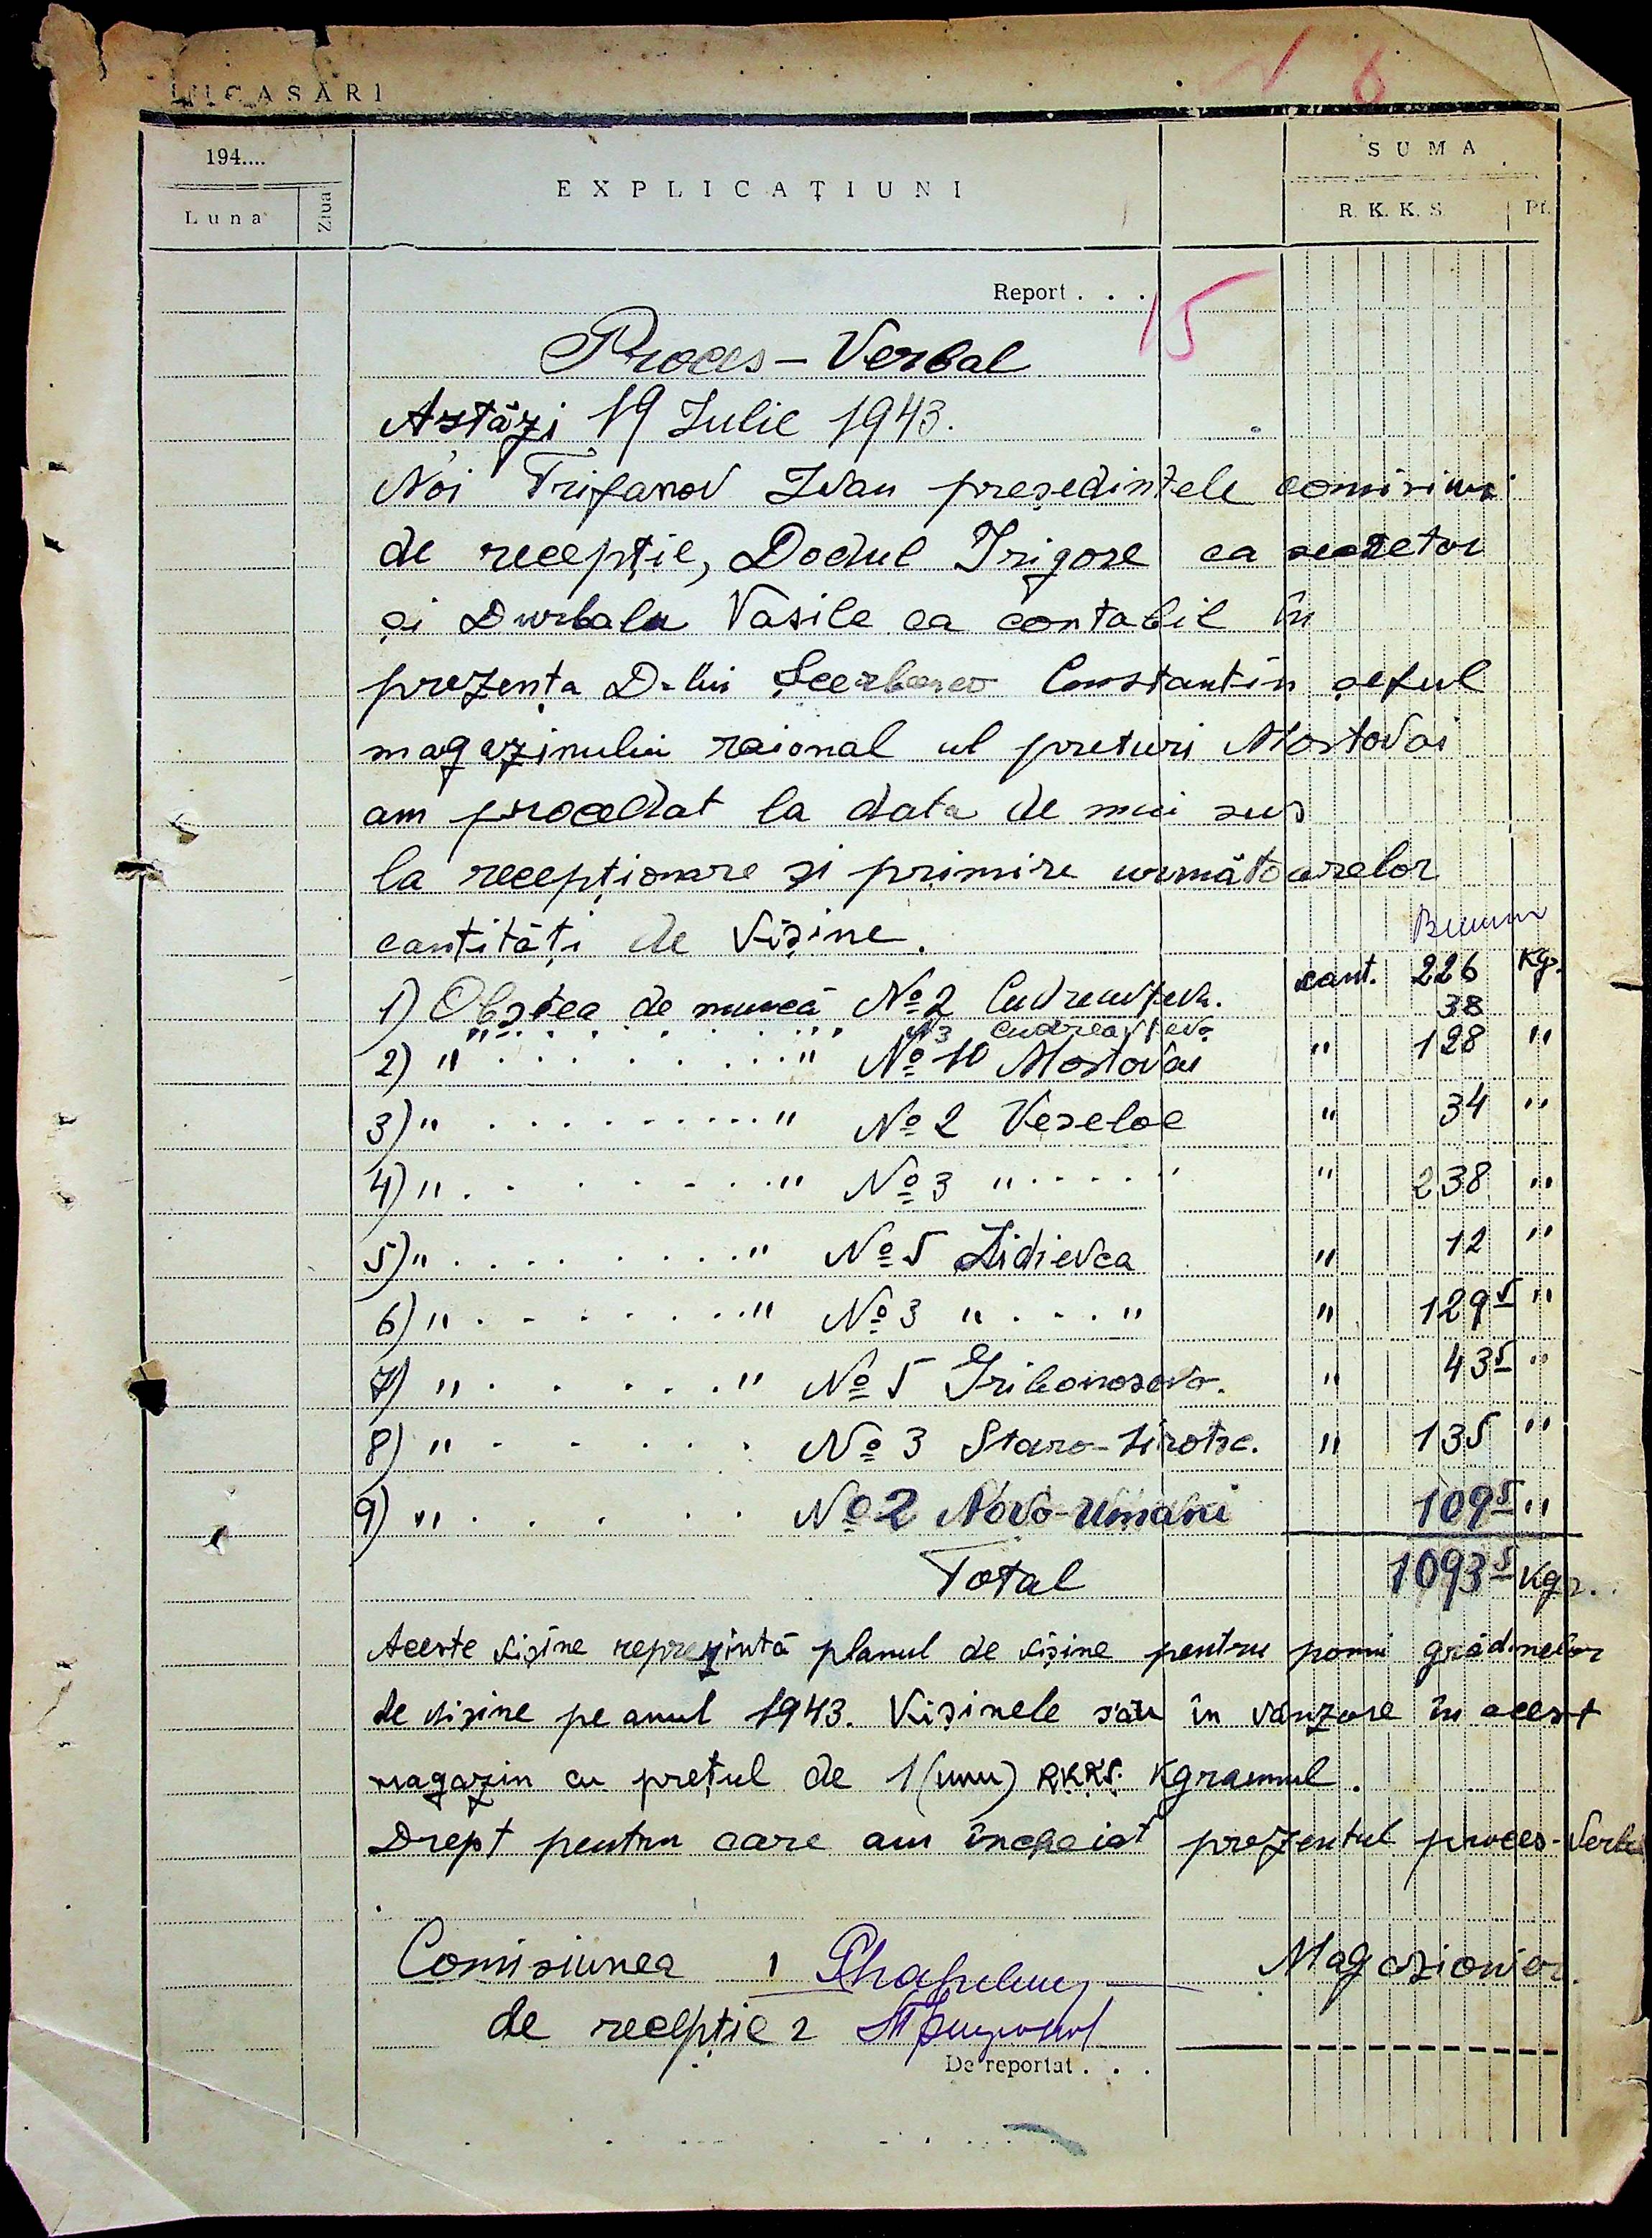 INCASĂRI
6
194....
Luna
Ziua
EXPLICAȚIUNI
SUMA
R. K. K. S.
Pf.
Report . . .
15
Proces-Verbal
Astăzi 19 Iulie 1943.
Noi Trifanov Ivan președintele comisiunei
de recepție, Dodul Grigore ca secretor
și Durbala Vasile ca contabil în
prezența D-lui Șcerbanco Constantin șeful
magazinului raional al preturi Mostovoi
am procedat la data de mai sus
la recepționare și primire următoarelor
cantități de vișine.
1) Obștea de muncă No 2 cant. 226 Kgr.
" . . . . . . . . " N3 38
2) " . . . . . . . . " No 10 Mostovoi " 128 "
3) " . . . . . . . . . " No 2 Veseloe " 34 "
4) " . . . . . . . " No 3 " . . . . " " 238 "
5) " . . . . . . . . " No 5 Lidievca " 12 "
6) " . . . . . . . " No 3 " . . . " " 129 5 "
7) " . . . . . . " No 5 Gribonosovo. " 43 5 "
8) " . . . . . . No 3 Staro- " 135 "
9) " . . . . . No 2 Novo-Umani 109 5 "
Total 1093 5 Kgr.
Aceste vișine reprezintă planul de vișine pentru pomi grădinelor
de vișine pe anul 1943. Vișinele său în vânzare în acest
magazin cu prețul de 1 (unu) RKKS. Kgramul.
Drept pentru care am încheiat prezentul proces-Verbal
Comisiunea 1 Magazioner.
de recepție 2
De reportat . . .